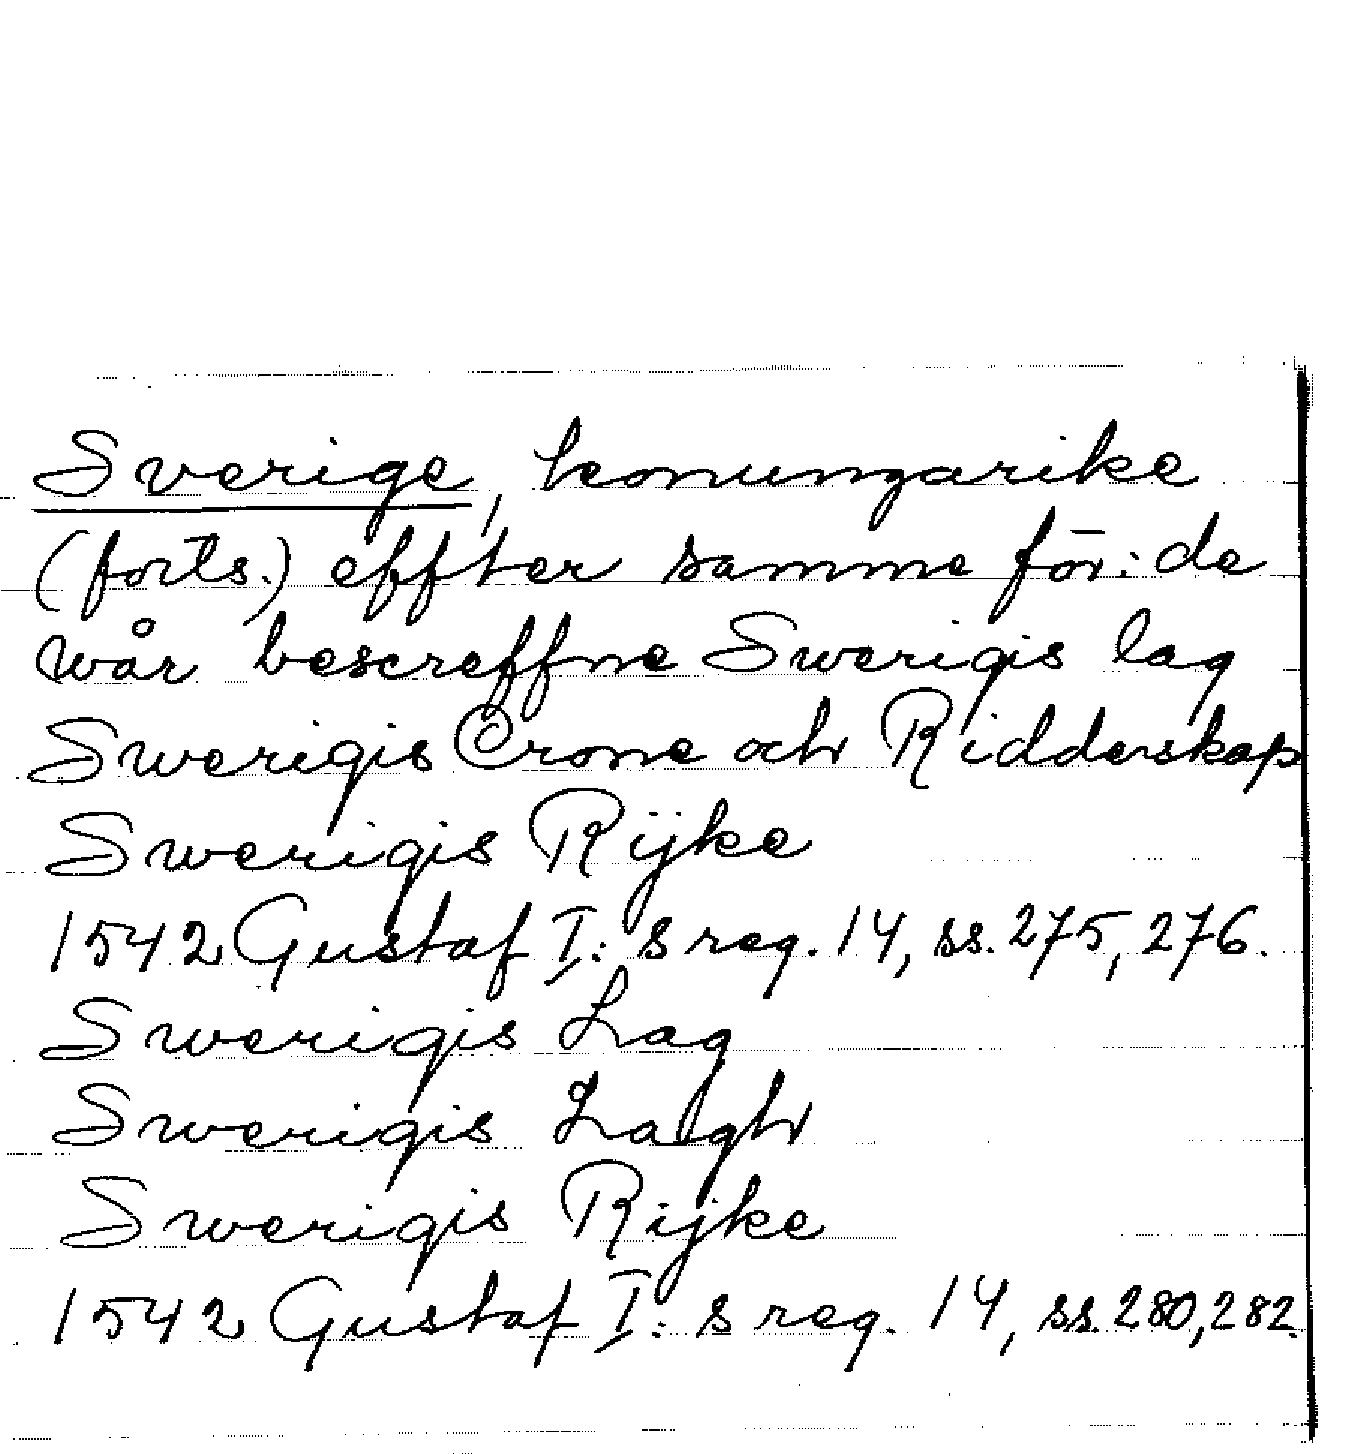 Sverige, konungarike
(forts.) effter samme för:de
wår bescreffne Swerigis lag
Swerigis Crone och Ridderskap
Swerigis Rijke
1542 Gustaf I:s reg. 14, ss. 275, 276.
Swerigis Lag
Swerigis Lagh
Swerigis Rijke
1542 Gustaf I:s reg. 14, ss. 280, 282.